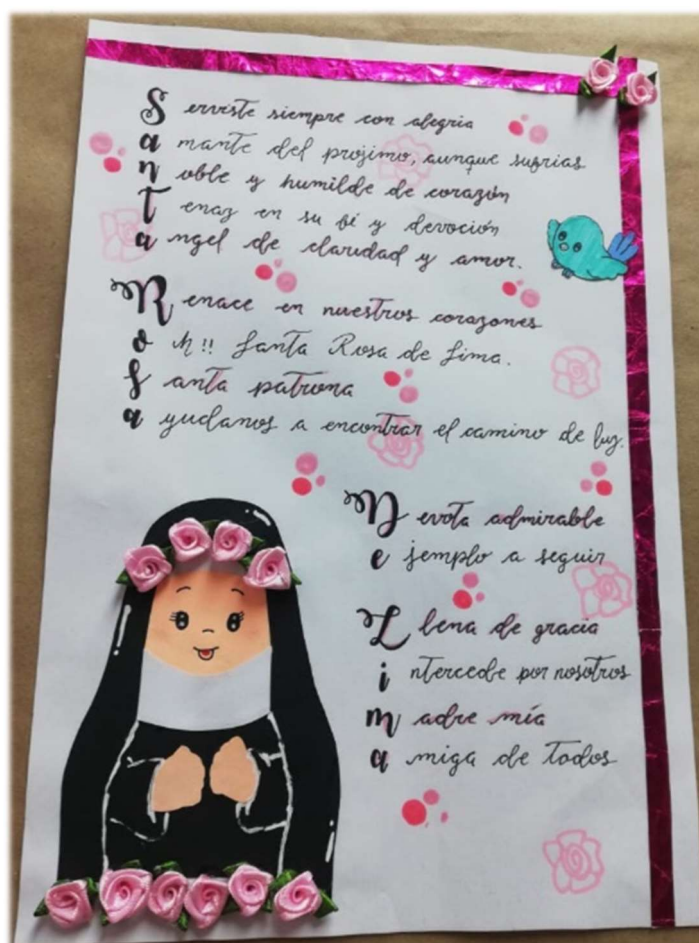 Serviste siempre con alegria
amante del projimo, aunque sufrias
noble y humilde de corazón
Tenaz en su fé y devoción
angel de claridad y amor.
Renace en nuestros corazones
oh!! Santa Rosa de Lima.
Santa patrona
ayudanos a encontrar el camino de luz.
Devota admirable
ejemplo a seguir
Llena de gracia
intercede por nosotros
madre mía
amiga de todos